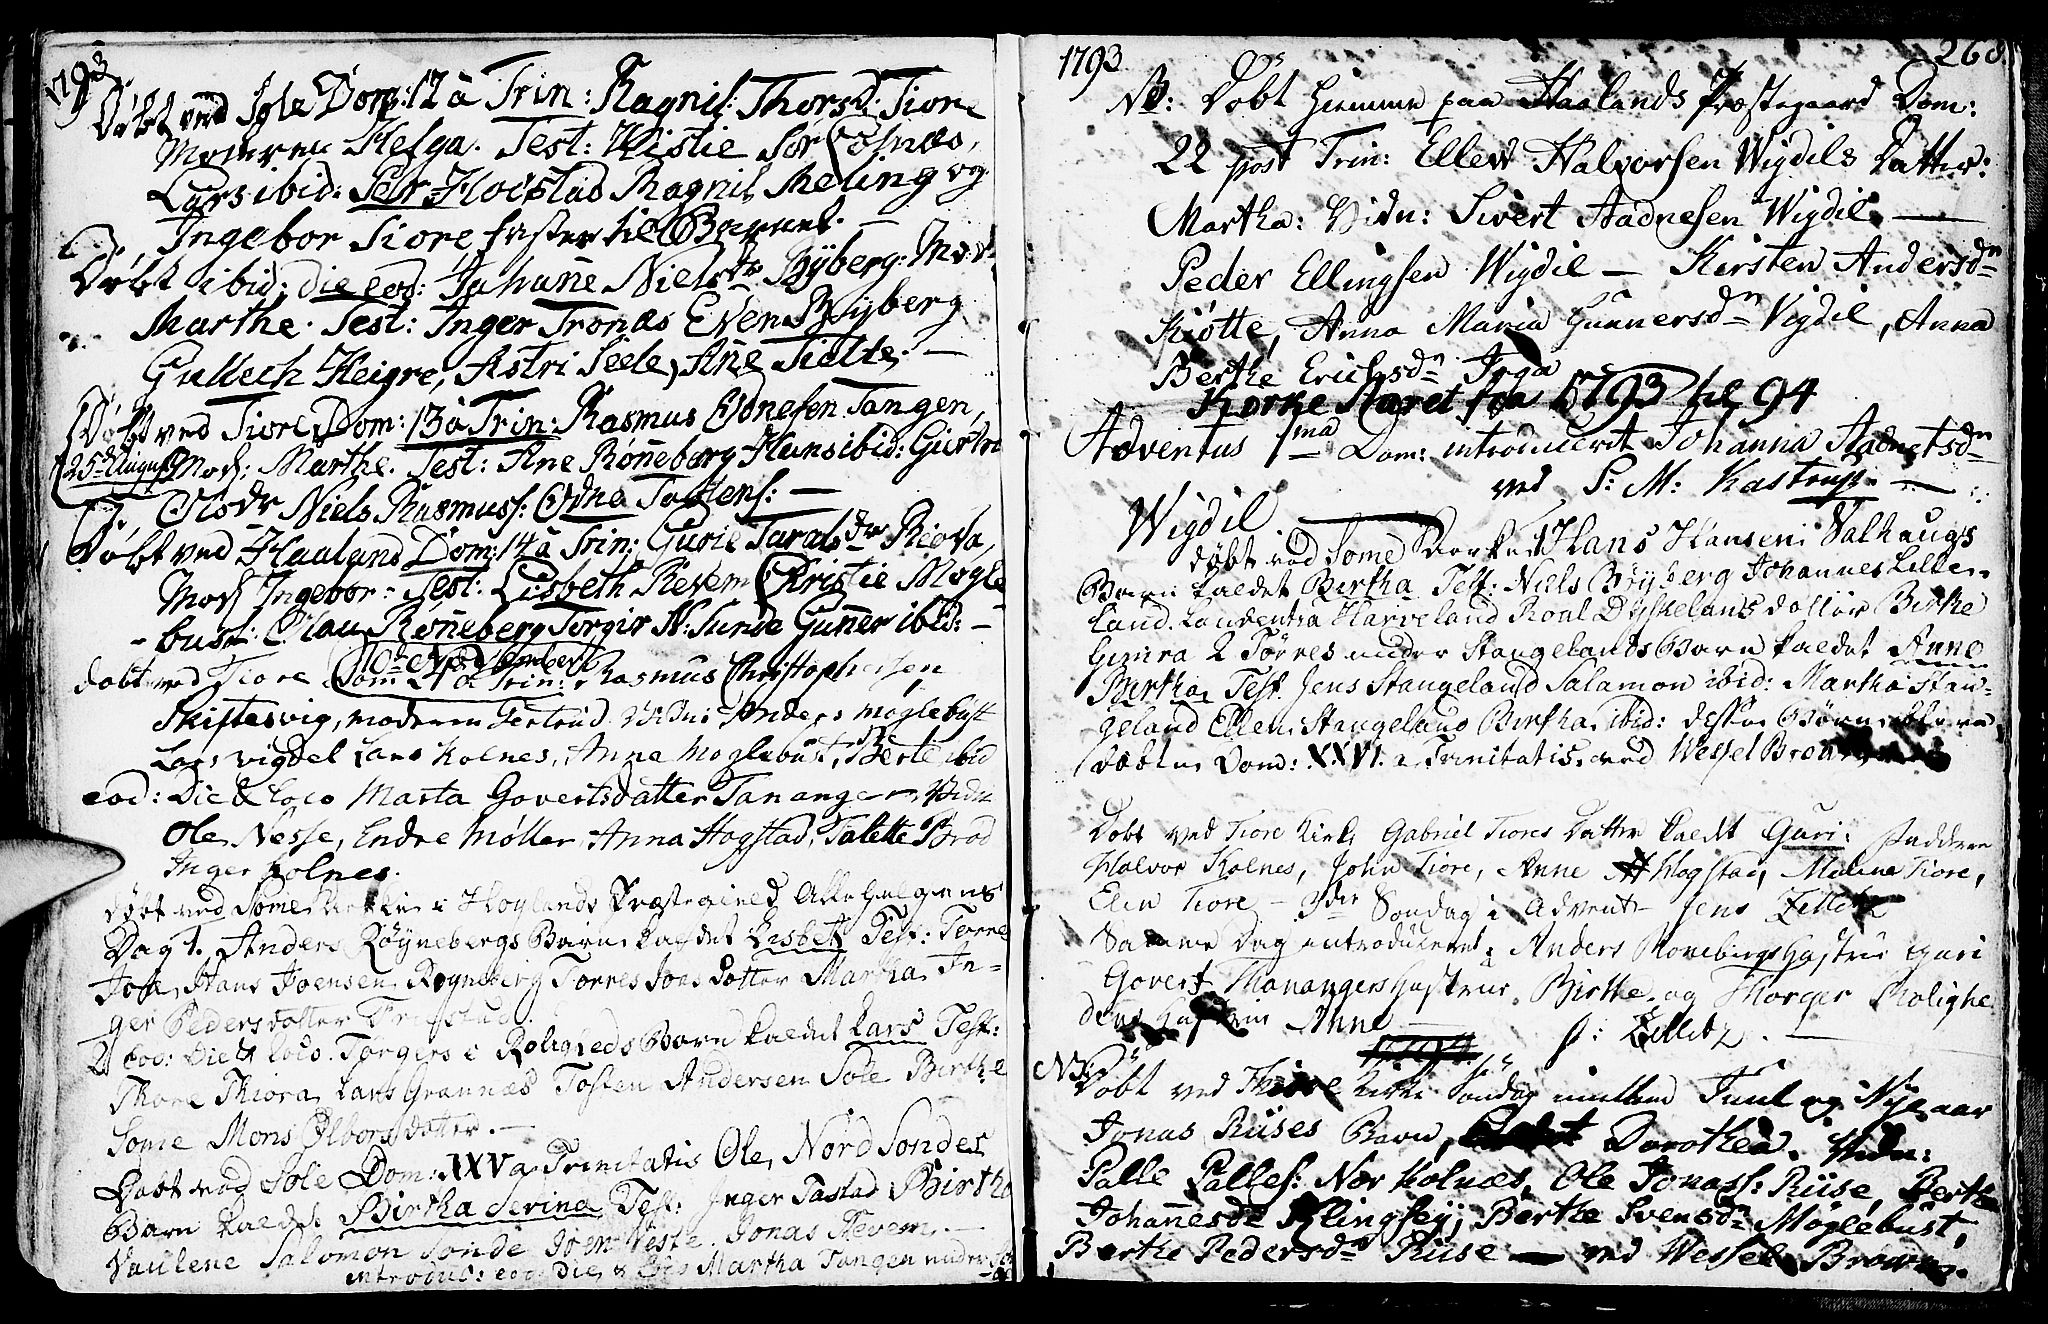 1793
Døbt ved Sole Dom: 12 a Trin: Ragnil: Thorsd: Tiore
Moderen Helga. Test: Kistie Sør Colnæs,
Lars ibid: Peder Hogstad Ragnil Meling og
Ingebor Tiore faster til Barnet. —
Døbt ibid: die eod: Johanne Nielsdr Ryberg: Mod:
Marthe. Test: Inger Tronæs Even Ryberg
Gullech Heigre, Astri Seele, Ane Tielte. —
Døbt ved Tiore Dom: 13 a Trin: Rasmus Odnesen Tangen,
25de August Mod: Marthe. Test: Ane Rønneberg Hans ibid: Gurtru
Niels Rasmuss: Odne
Døbt ved Haaland Dom: 14 a Trin: Gurie Taralsdr Reova,
Mod Ingebor - Test: Lisbeth Revem Christie Mogle
bust: Olau Rønneberg Torgir N: Sunde Gunner ibid: —
10de November
døbt ved Tiore Dom 24 a Trin: Rasmus Christophersen
Skiftesvig, moderen Gertrud. Vidni Anders møglebust
Lars vigdel Lars Kolnes, Anna Moglebust, Berte ibid
eod: Die & loco Marta Govertsdatter Tananger, Vidn
Ole Nesse, Endre Møller, Anna Hogstad, Talette Brod
Inger Kolnes.
døbt ved Some Kirke i Høylands Præstegield Allehelgens
Dag 1. Anders Røynebergs Barn kaldet Lisbet Test: Torre
Joa, Hans Joensen Røyneberg Torres Joes dotter Martha In-
ger Pedersdotter
eod: Die & loco. Torgers i Roligheds Barn kaldet Lars Test:
Thore Thiora Lars Grannæs Tosten Andersen Sole Birthe
Some Mons Olbors dotter. —
Døbt ved Sole Dom: XXV a Trinitatis Ole Nord Sondes
Barn kaldt Birtha Serina Test: Inger Tastad Birtha
Vaulene Salomon Sonde Joen Jonas Revem. —
introduc: eod: Die & loco Martha Tangen under
1793 268
NB: Døbt hiemme paa Haalands Præstegaard Dom:
22 post Trin: Ellew Halvorsen Wigdils Datter:
Martha: Vidn: Siwert Aadnesen Wigdil —
Peder Ellingsen Wigdil — Kirsten Andersdn
Kiøtte, Anna Maria Gunnersdn Vigdil, Anna
Berthe Erichsdn Joga
Kirke Aaret fra 1793 til 94
Adventus 1ma Dom: introducerit Johanna Aadnetsdn
Wigdil ved S: M: Kastrup. —
døbt ved Some Kirke Hans Hansen: Salhaugs
Barn kaldet Birtha Test: Niels Røyberg Johannes Lille-
land. Laudentia Harveland Roal Dyskelans dotter Birthe
Gimra 2 Torres under Stangelands Barn kaldet Anne
Bertha Test. Jens Stangeland Salamon ibid: Martha Stan-
geland Ellen Stangeland Birtha ibid: desse Børn
døbte Dom: XXVI. a Trinitatis. ved Wessel Brown
Døbt ved Tiore Kirke Gabriel Tiores Datter kaldt Guri: Faddere
Halvor Kolnes, John Tiore, Anne Hogstad, Malene Tiore,
Elen Tiore — 3die Søndag i Advent — Jens Zetlitz
Samme Dag introduceret: Anders Ronebergs Hustrue Guri
Govert Thanangers Hustrue Birthe og Thorger Rolighe
dens Hustrue Anne — J: Zetlitz. —
NB
Døbt ved Thiore Kirke Søndag imellem Juul og Nytaar
Jonas Riises Barn, Dorothea. Vidn:
Palle Palles: Nør Kolnæs, Ole Jonass: Riise, Berthe
Johannesdr Klingsey, Berthe Svensdn Møglebust,
Berthe Pedersdn Riise — ved Wessel Brown.